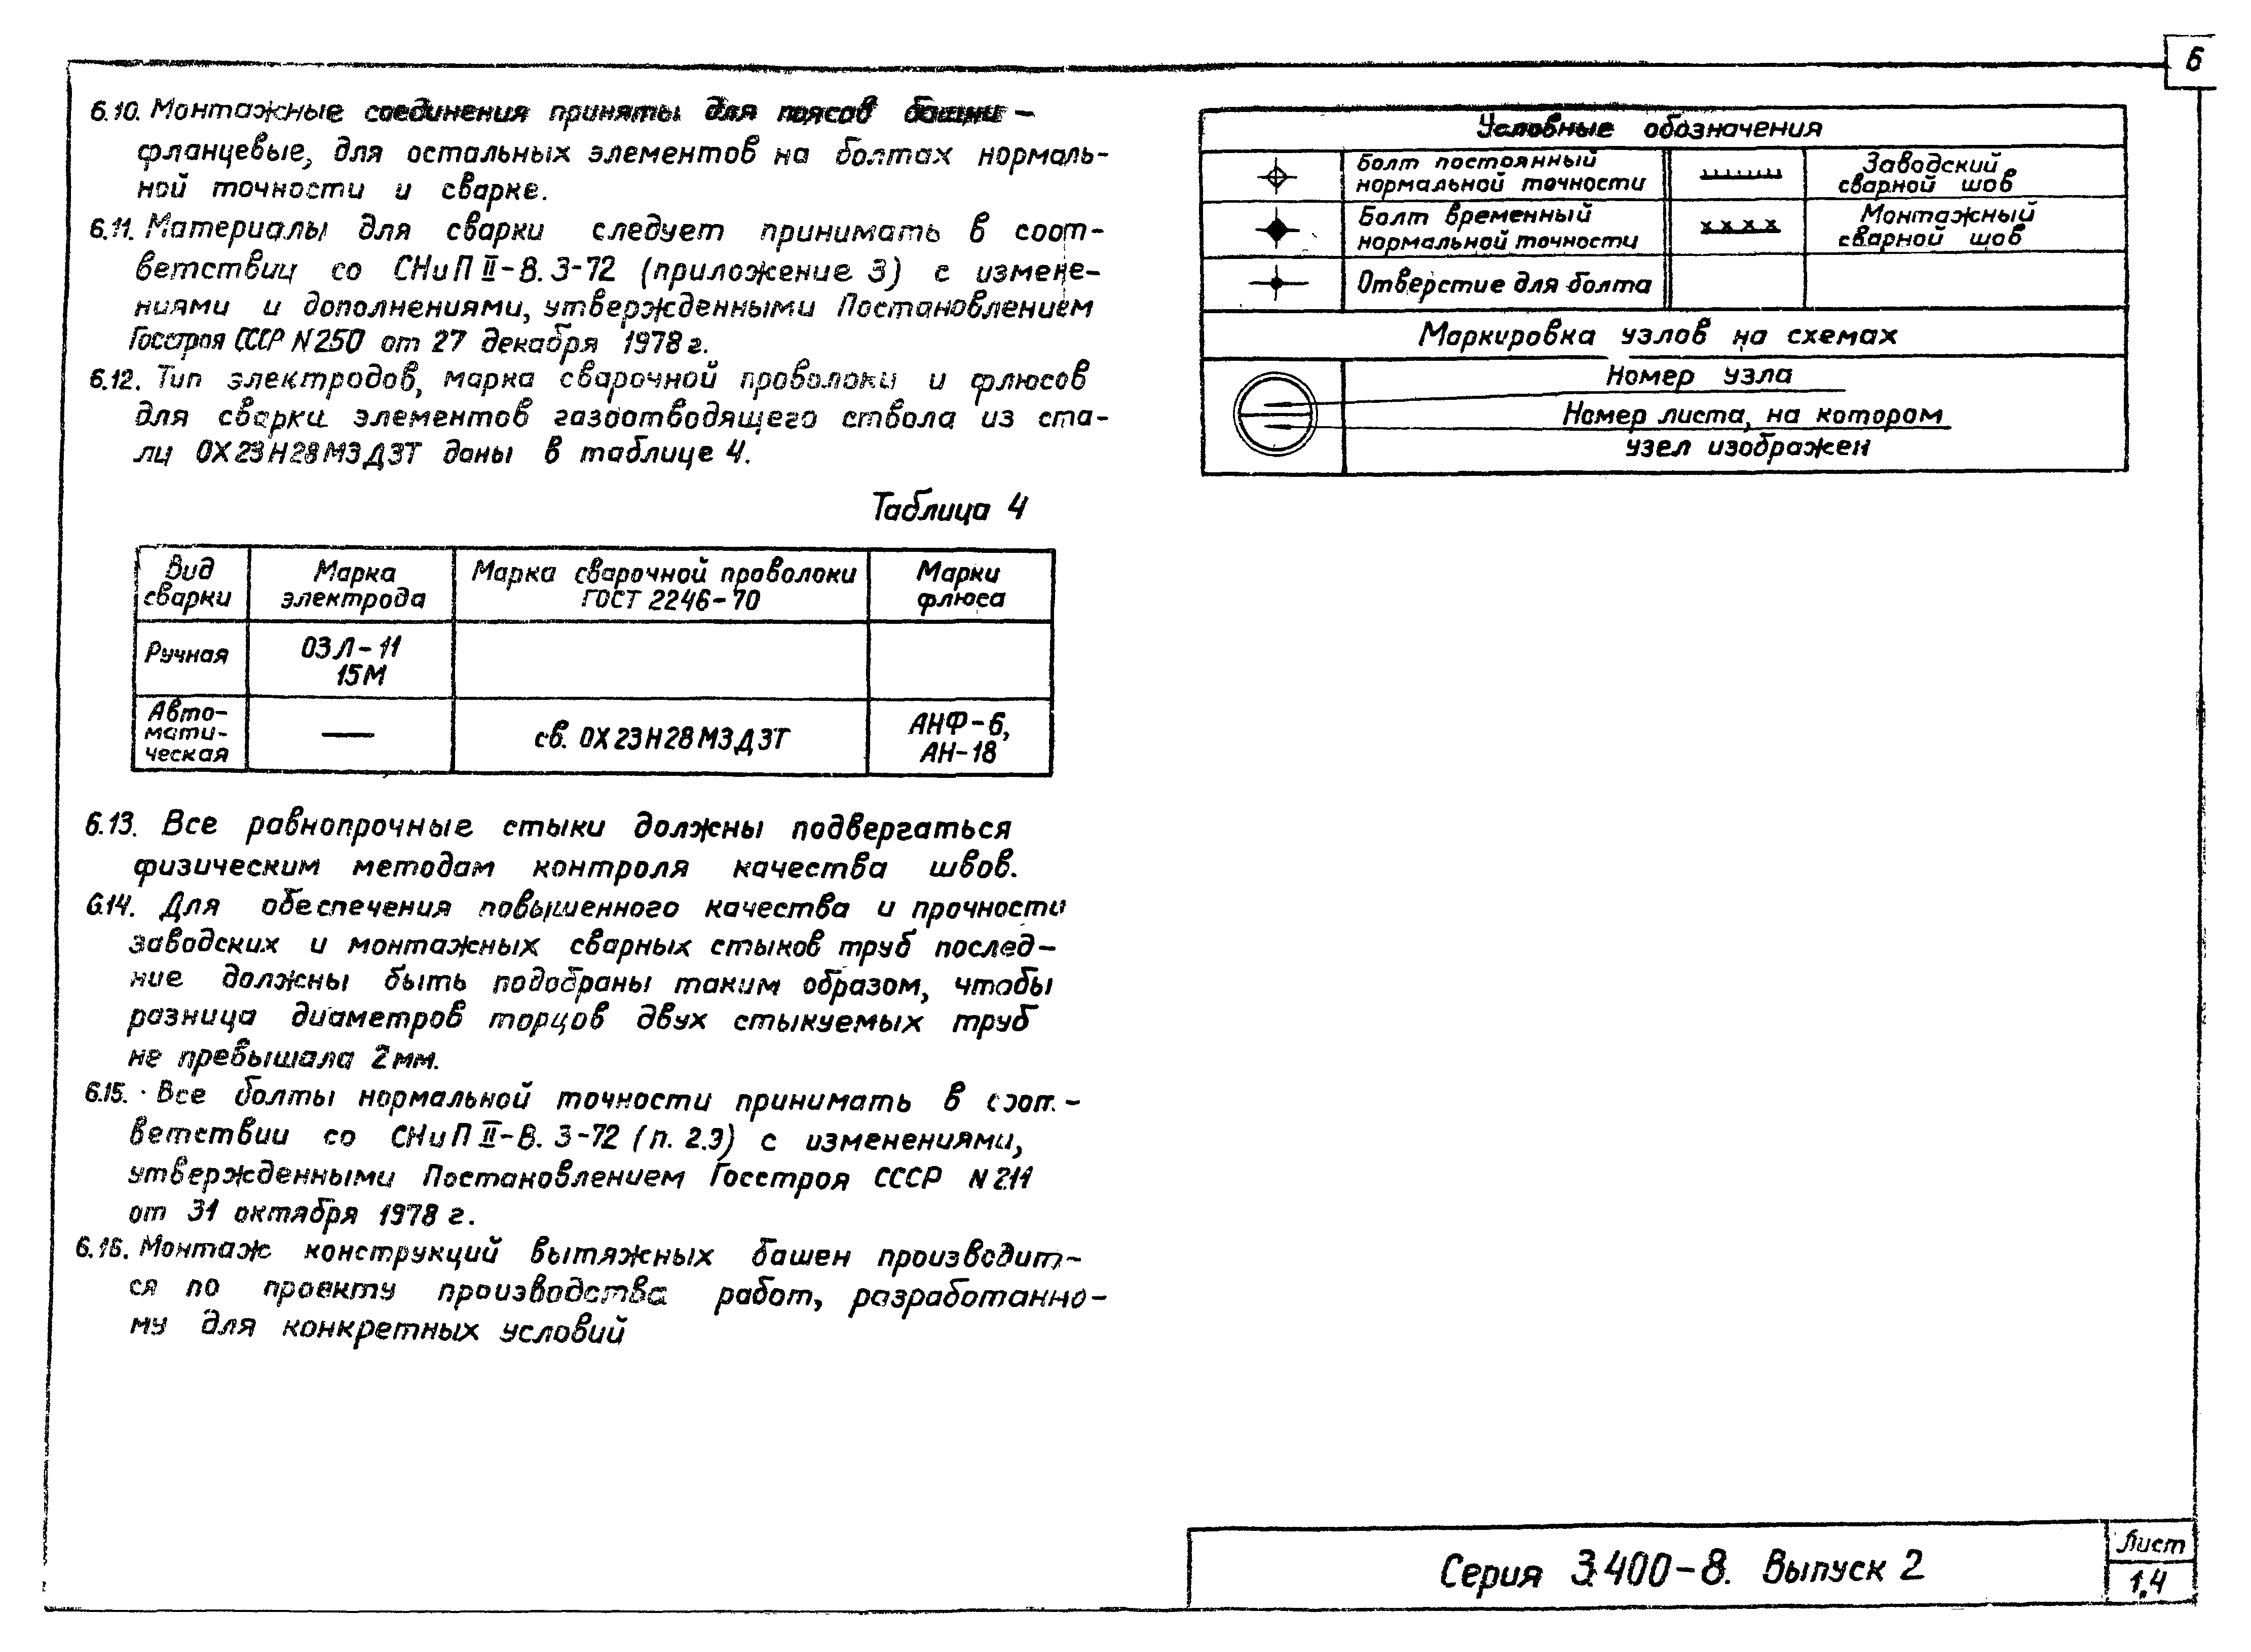 6
6.10. Монтажные соединения приняты для поясов башни –
фланцевые, для остальных элементов на болтах нормаль-
ной точности и сварке.
6.11. Материалы для сварки следует принимать в соот-
ветствии со СНиП II-В.3-72 (приложение 3) с измене-
ниями и дополнениями, утвержденными Постановлением
Госстроя СССР N250 от 27 декабря 1978г.
6.12. Тип электродов, марка сварочной проволоки и флюсов
для сварки элементов газоотводящего ствола из ста-
ли 0Х23Н28М3Д3Т даны в таблице 4.
Таблица 4
Вид сварки | Марка электрода | Марка сварочной проволоки ГОСТ 2246-70 | Марки флюса
Ручная | ОЗЛ-11 15М
Авто-мати-ческая | — | св. 0Х23Н28М3Д3Т | АНФ-6, АН-18
6.13. Все равнопрочные стыки должны подвергаться
физическим методам контроля качества швов.
6.14. Для обеспечения повышенного качества и прочности
заводских и монтажных сварных стыков труб послед-
ние должны быть подобраны таким образом, чтобы
разница диаметров торцов двух стыкуемых труб
не превышала 2мм.
6.15. Все болты нормальной точности принимать в соот-
ветствии со СНиП II-В.3-72 (п. 2.3) с изменениями,
утвержденными Постановлением Госстроя СССР N211
от 31 октября 1978г.
6.16. Монтаж конструкций вытяжных башен производит-
ся по проекту производства работ, разработанно-
му для конкретных условий
Условные обозначения
Болт постоянный нормальной точности | Заводский сварной шов
Болт временный нормальной точности | Монтажный сварной шов
Отверстие для болта
Маркировка узлов на схемах
Номер узла
Номер листа, на котором
узел изображен
Серия 3.400-8. Выпуск 2
Лист
1.4